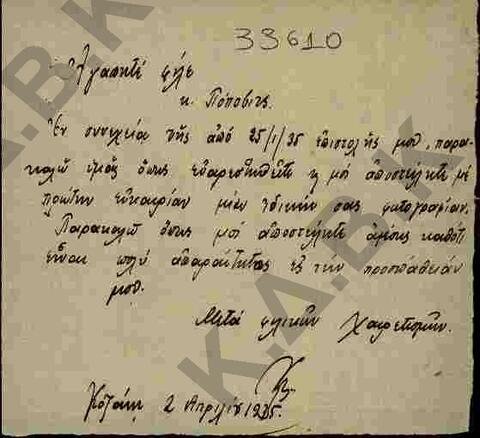 33610
Ἀγαπητέ φίλε
κ. Πόποβιτς.
Ἐν συνεχείᾳ τῆς ἀπό 25/1/35 ἐπιστολῆς μου, παρα-
καλῶ ὑμᾶς ὅπως εὐαρεστηθῆτε μοί ἀποστείλητε μέ
πρώτην εὐκαιρίαν μίαν ἰδικήν σας φωτογραφίαν.
Παρακαλῶ ὅπως μοί ἀποστείλητε ἀμέσως καθότι
εἶναι πολύ ἀπαραίτητος εἰς τήν προσπάθειάν
μου.
Μετά φιλικῶν χαιρετισμῶν.
Κοζάνη 2 Ἀπριλίου 1935.
Κ.Δ.Β.Κ